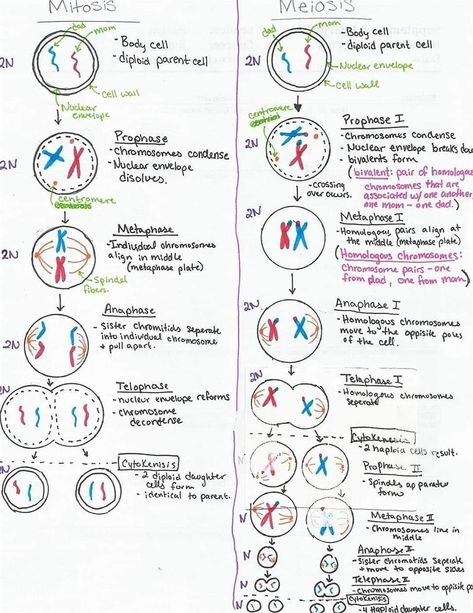 Mitosis
dad
mom
2N
- Body cell
- diploid parent cell
cell wall
Nuclear
envelope
Prophase
2N
- Chromosomes condense
- Nuclear envelope
disolves.
centromere
Metaphase
2N
- Individual chromosomes
align in middle
(metaphase plate)
Spindel
fibers.
Anaphase
2N
- Sister chromitids seperate
into individual chromosome
+ pull apart.
Telophase
2N
- nuclear envelope reforms
- chromosome
decondense
Cytokenisis
2N
- 2 diploid daughter
cells form
- identical to parent.
Meiosis
dad
mom
2N
- Body cell
- diploid parent cell
Nuclear envelope
cell wall
centromere
Prophase I
2N
- Chromosomes condense
- Nuclear envelope breaks do
- bivalents form
(bivalent: pair of homologou
chromosomes that are
associated w/ one anothe
one mom - one dad.)
-crossing
over occurs.
Metaphase I
2N
- Homologous pairs align at
the middle (metaphase plate)
(Homologous chromosomes:
Chromosome pairs - one
from dad, one from mom)
Anaphase I
2N
- Homologous chromosomes
move to the oppisite poles
of the cell.
Telaphase I
2N
- Homologous chromosomes
seperate
Cytokenesis
N
- 2 haploid cells result.
Prophase II
- Spindles aparatus
form
Metaphase II
N
- Chromosomes line in
middle
Anaphase II
N
- Sister chromatids Seperate
+ move to opposite sides
Telephase II
N
- Chromosomes move to oppisite
Cytokinesis
N
- 4 Haploid daughter cells